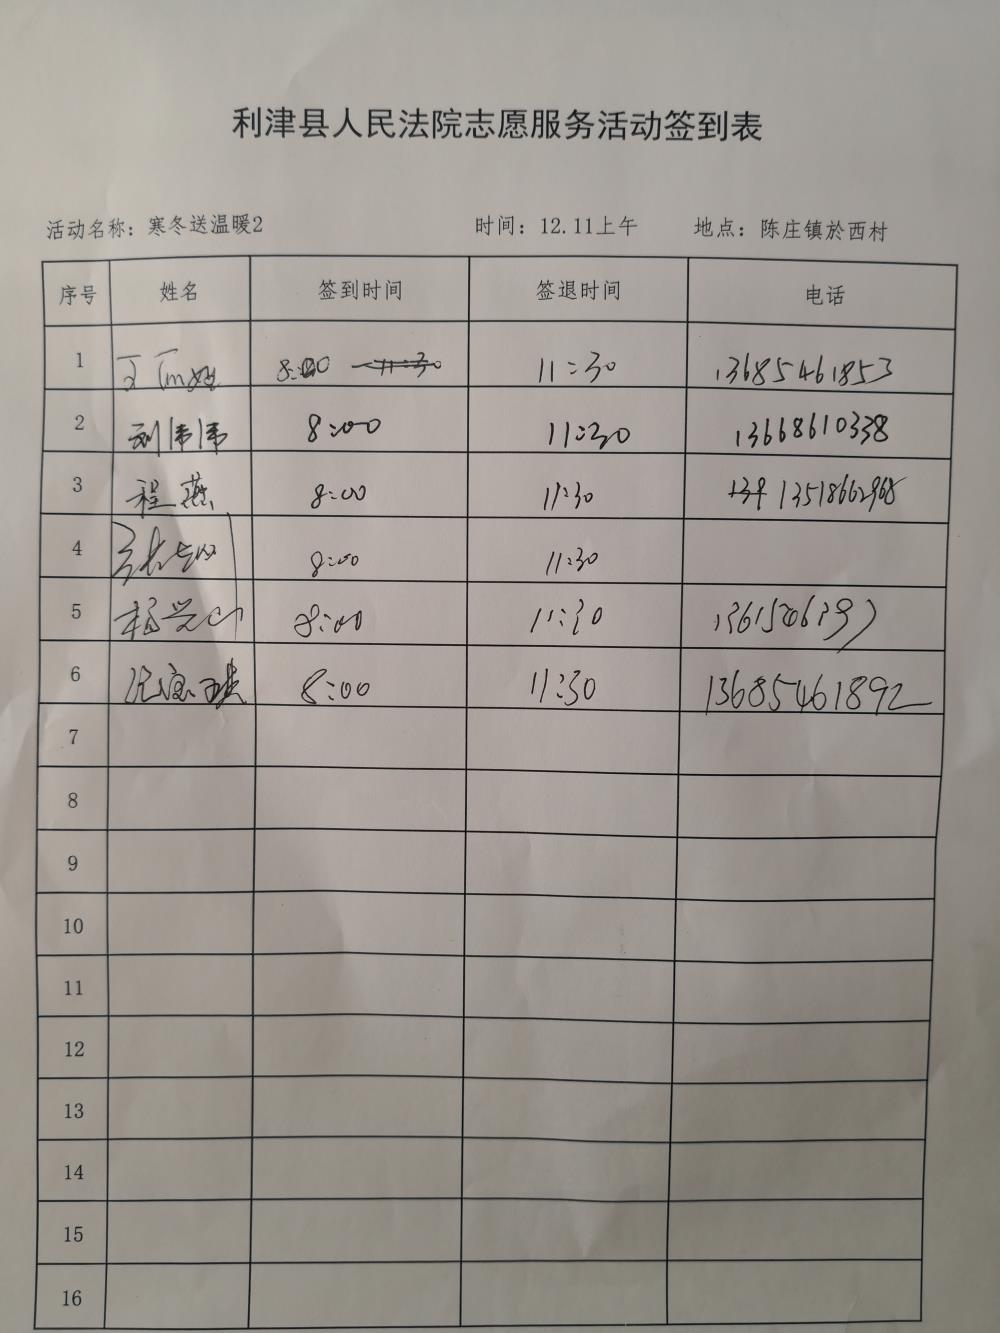 利津县人民法院志愿服务活动签到表
活动名称：寒冬送温暖2 时间：12.11上午 地点：陈庄镇於西村
序号 姓名 签到时间 签退时间 电话
1 8:00 11:30 11:30 13685461853
2 刘伟伟 8:00 11:30 13668610338
3 程燕 8:00 11:30 13518662968
4 8:00 11:30
5 8:00 11:30
6 8:00 11:30 13685461892
7
8
9
10
11
12
13
14
15
16